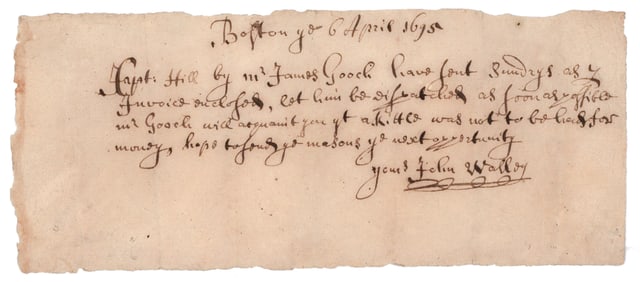 Boston ye 6 April 1695
Capt: Hill by mr James Gooch have sent Sundrys as p
Invoice enclosed, let him be dispatched as soon as possible
mr Gooch will acquaint you yt a kittle was not to be had for
money, hope to send ye masons ye next oppertunity
yors John Walley